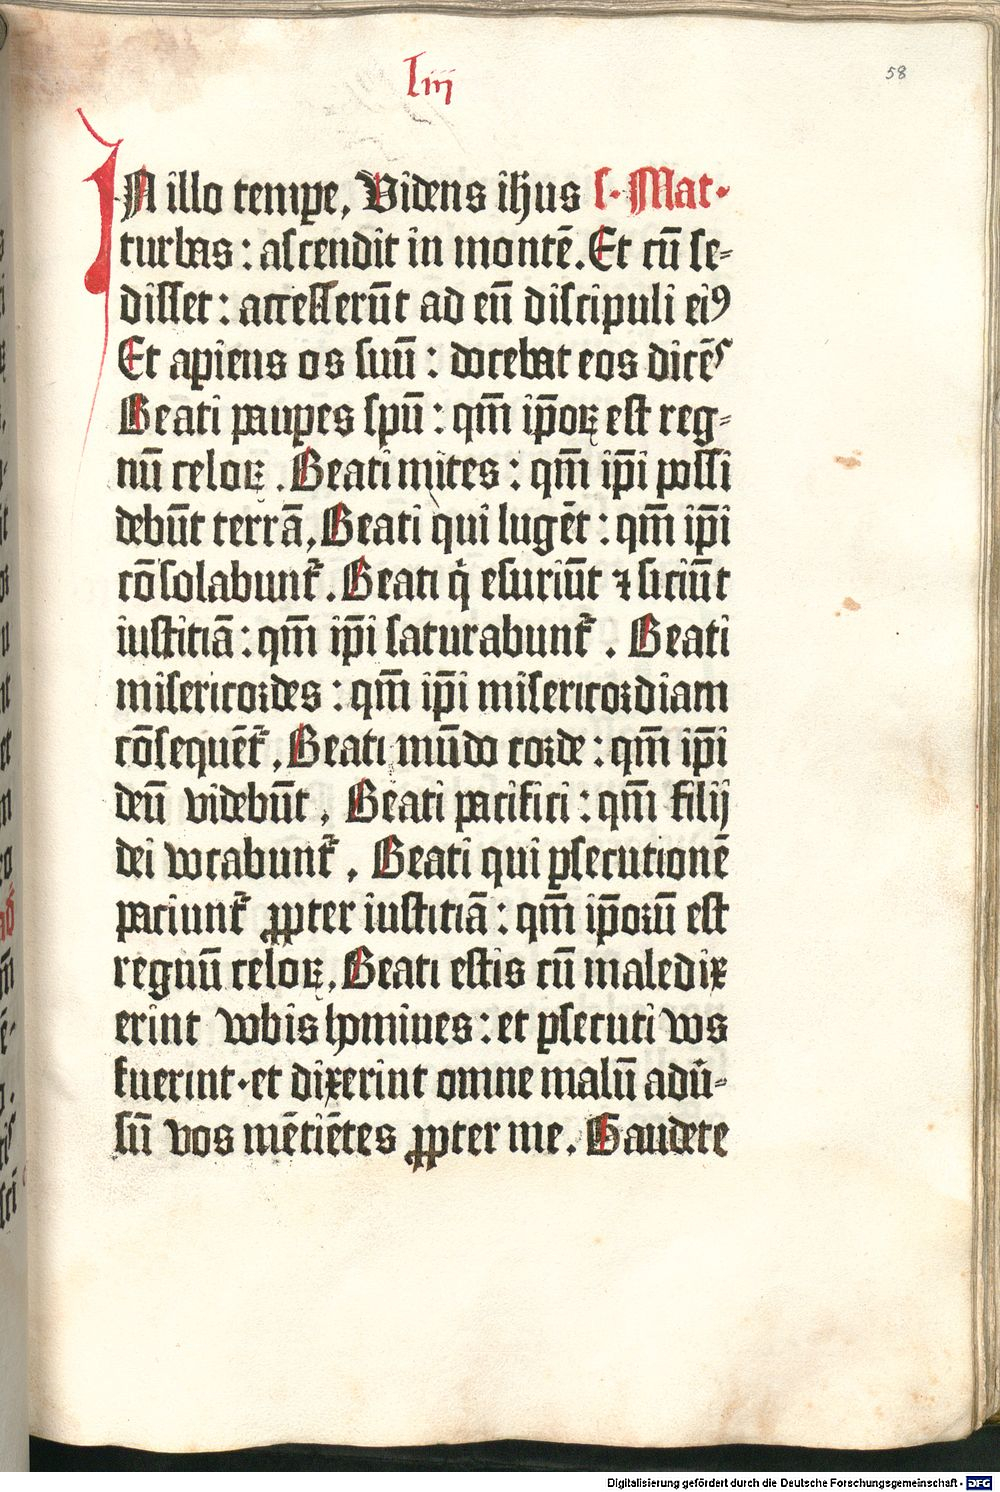 Liij
58
IN illo tempꝑe, Videns ih̄us s· Mat·
turbas : ascendit in montē. Et cū se⸗
disset : accesserūt ad eū discipuli eiꝰ
Et apiens os suū : docebat eos dicēs
Beati paupes spū : qm̄ ip̄oꝝ est reg⸗
nū celoꝝ . Beati mites : qm̄ ip̄i possi
debūt terrā, Beati qui lugēt : qm̄ ip̄i
cōsolabunt᷑. Beati q̇ esuriūt ⁊ sitiūt
iustitiā : qm̄ ip̄i saturabunt᷑ . Beati
misericordes : qm̄ ip̄i misericordiam
cōsequēt᷑ , Beati mūdo corde : qm̄ ip̄i
deū videbūt , Beati pacifici : qm̄ filij
dei vocabunt᷑ , Beati qui ꝑsecutionē
paciunt᷑ ꝓpter iustitiā : qm̄ ip̄orū est
regnū celoꝝ, Beati estis cū maledix
erint vobis homines : et ꝑsecuti vos
fuerint · et dixerint omne malū adū⸗
sū vos mētiētes ꝓpter me . Gaudete
Digitalisierung gefördert durch die Deutsche Forschungsgemeinschaft - DFG